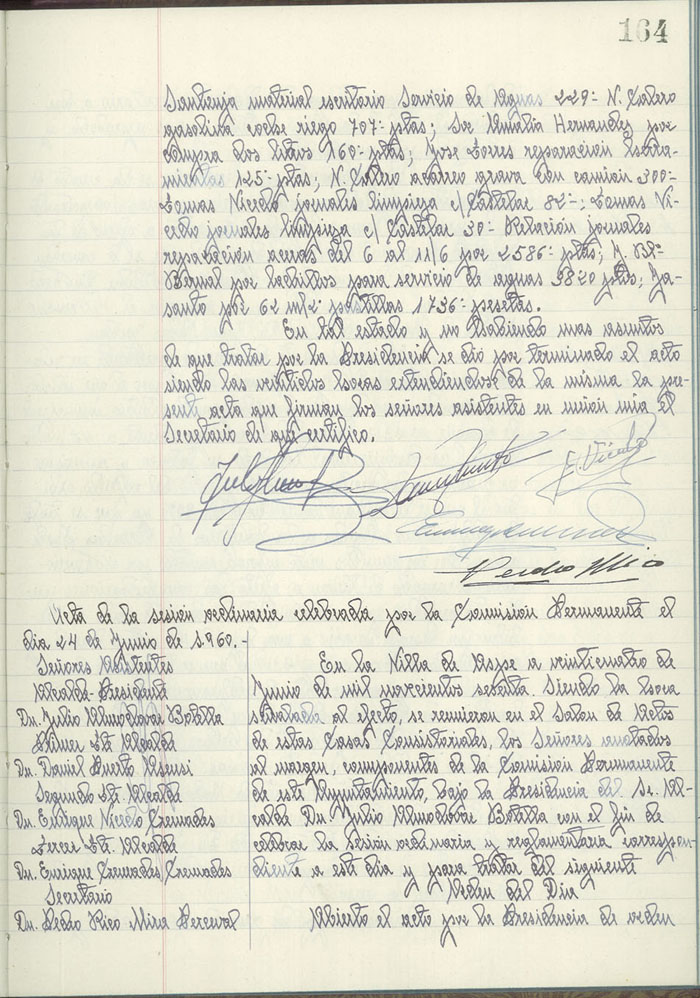 164
Santonja material escritorio Servicio de Aguas 229- N. Calero
gasolina coche riego 707- ptas; Sr Amalia Hernandez por
compra dos litros 160- ptas; Jose Torres reparacion herra-
mientas 125- ptas; N. Calero acarreo grava con camion 300-
Tomas Vicedo jornales limpieza c/ Castelar 82-; Tomas Vi-
cedo jornales limpieza c/ Castelar 30- Relación jornales
reparación aceras del 6 al 11/6 por 2586- ptas; M. Bl-
Bernal por ladrillos para servicio de aguas 3820 ptas;
santo por 62 m/2 pastillas 1736- pesetas.
En tal estado y no habiendo mas asuntos
de que tratar por la Presidencia se dió por terminado el acto
siendo las veintidos horas extendiendose de la misma la pre-
sente acta que firman los señores asistentes en unión mia el
Secretario de que certifico.
E. Vicedo
Pedro Mira
Acta de la sesión ordinaria celebrada por la Comision Permanente el
dia 24 de Junio de 1.960.-
Señores Asistentes
Alcalde-Presidente
Dn. Julio Almodovar Botella
Primer Tte. Alcalde
Dn. Daniel Puerto Asensi
Segundo Tte. Alcalde
Dn. Enrique Vicedo Cremades
Tercer Tte. Alcalde
Dn. Enrique Cremades Cremades
Secretario
Dn. Pedro Rico Mira Perceval
En la Villa de Aspe a veinticuatro de
Junio de mil novecientos sesenta. Siendo la hora
señalada al efecto, se reunieron en el Salon de Actos
de estas Casas Consistoriales, los Señores anotados
al margen, componentes de la Comision Permanente
de este Ayuntamiento, bajo la Presidencia del Sr. Al-
calde Dn Julio Almodovar Botella con el fin de
celebrar la sesión ordinaria y reglamentaria correspon-
diente a este dia y para tratar del siguiente
Orden del Dia
Abierto el acto por la Presidencia de orden